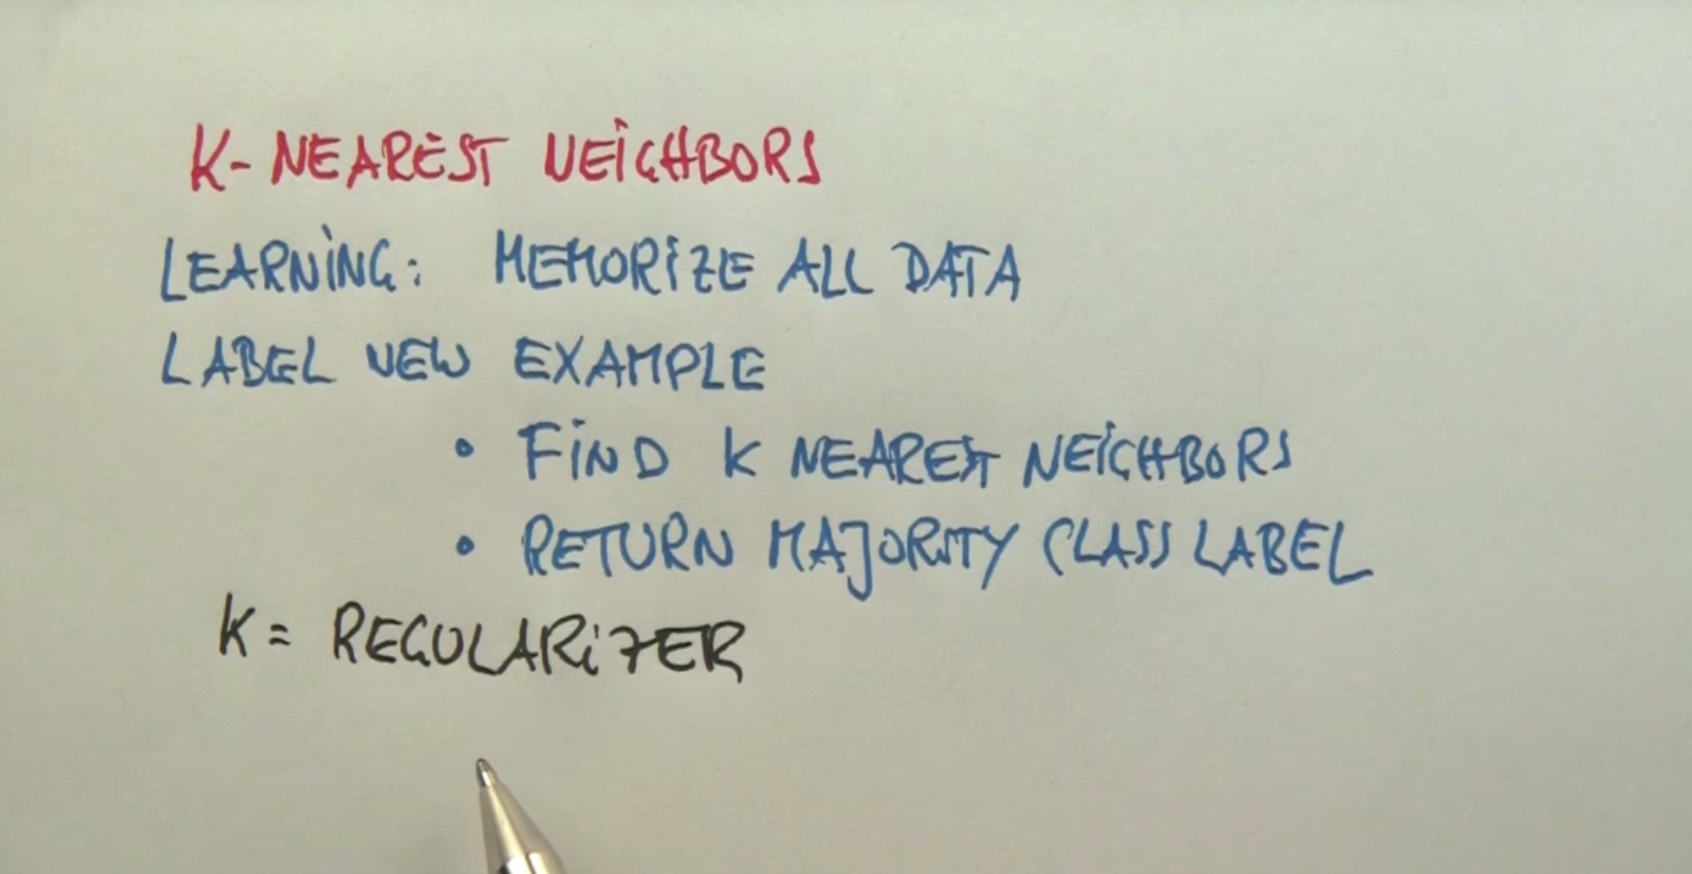 K-NEAREST NEIGHBORS
LEARNING: MEMORIZE ALL DATA
LABEL NEW EXAMPLE
• FIND K NEAREST NEIGHBORS
• RETURN MAJORITY CLASS LABEL
K = REGULARIZER